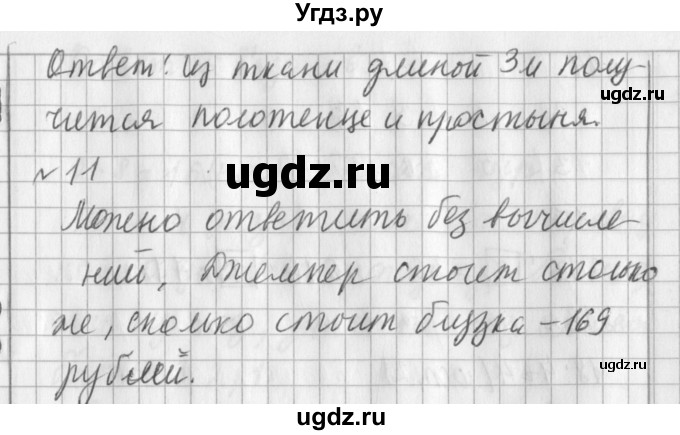 Угдз.ру
Ответ: из ткани длиной 3м полу-
чится полотенце и простыня.
№11
ugdz.ru
Можно ответить без вычисле-
ний, Джемпер стоит столько
же, сколько стоит блузка - 169
рублей.
ugdz.ru